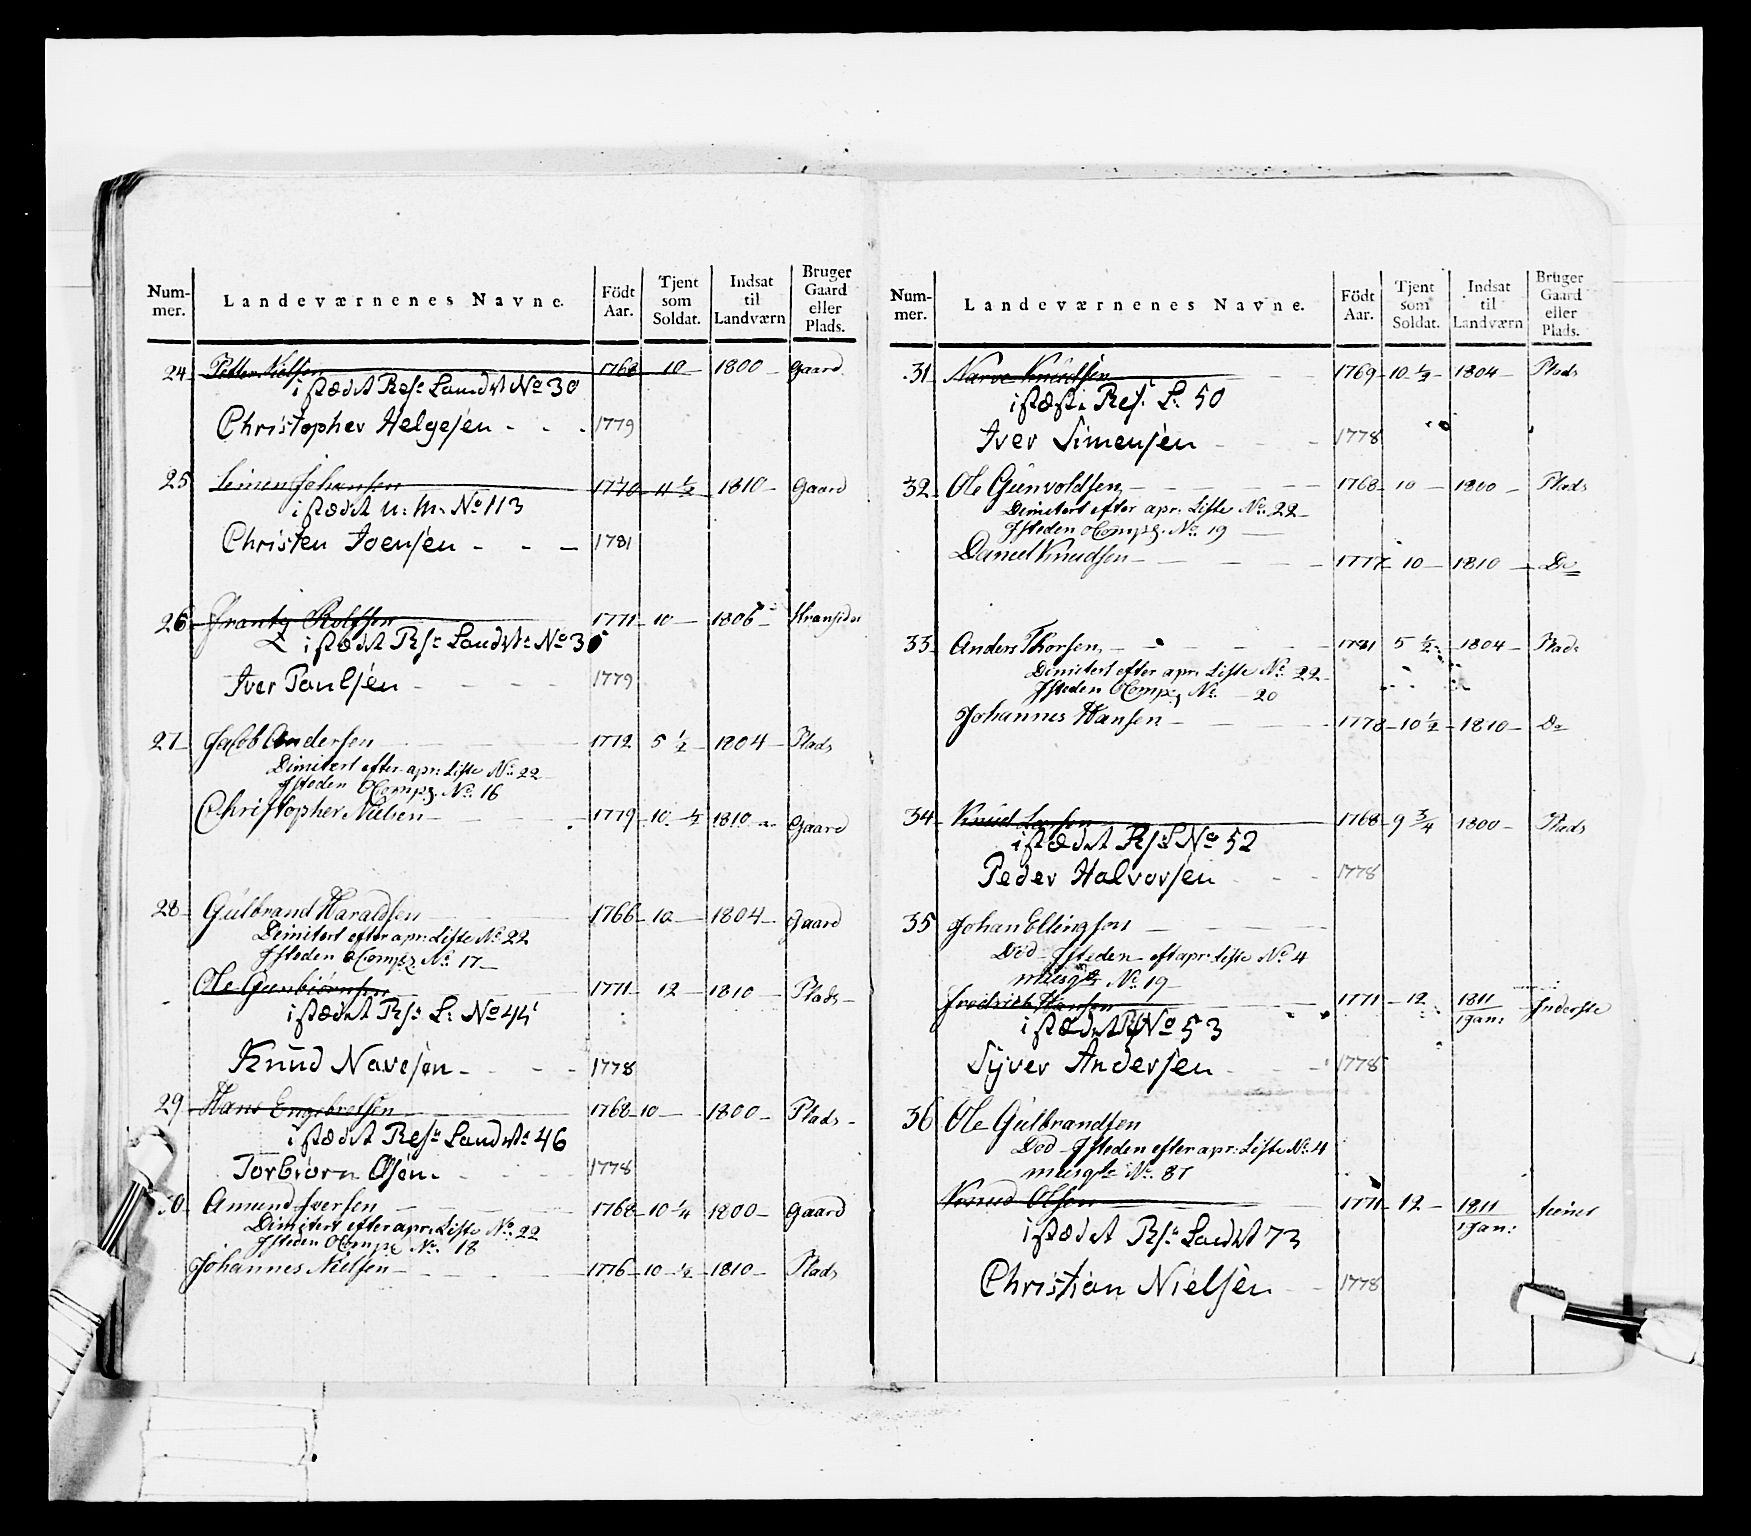 Num-mer. Landeværnenes Navne. Födt Aar. Tjent som Soldat. Indsat til Landværn Bruger Gaard eller Plads.
24 Petter Nielsen 1768 10 1800 Gaard
i stædet Ress Landv No 30
Christopher Helgesen 1779
25 Simen Johansen 1770 11 1/2 1810 Gaard
i stædet u. M. No 113
Christen Joensen 1781
26 Frantz Rolfsen 1771 10 1806
i stædet Rs: Landv: No 35
Iver Paulsen 1779
27 Jacob Andersen 1772 5 1/2 1804 Plads
Dimitert efter apr: Liste No: 22
Isteden Comp: No: 16
Christopher Nielsen 1779 10 1/2 1810 Gaard
28 Gulbrand Haraldsen 1766 10 1804 Gaard
Dimitert efter apr: Liste No 22
Isteden Comp: No 17
Ole Gunbiörnsen 1771 12 1810 Plads
i stædet Rs: L: No 44
Knud Navesen 1778
29 Hans Engebretsen 1768 10 1800 Plads
i stædet Res: Landv: 46
Torbiorn Olsen 1778
30 Amund Iversen 1768 10 1/4 1800 Gaard
Dimitert efter apr: Liste No: 22
Isteden Comp: No: 18
Johannes Nielsen 1776 10 1/2 1810 Plads
Num-mer. Landeværnenes Navne. Födt Aar. Tjent som Soldat. Indsat til Landværn Bruger Gaard eller Plads.
31 Narve Knudsen 1769 10 1/2 1804 Plads
Res: L: 50
Iver Simensen 1778
32 Ole Gunvoldsen 1768 10 1800 Plads
Dimitert efter apr: Liste No: 22
Isteden Comp: No: 19
Daniel Knudsen 1777 10 1810 Do
33 Anders Thorsen 5 1/2 1804 Plads
Dimitert efter apr: Liste No: 22
Isteden Comp: No: 20
Johannes Hansen 1778 10 1/2 1810 Do
34 Knud Larsen 1768 9 3/4 1800 Plads
i stædet Rs: L No 52
Peder Halvorsen 1778
35 Johan Ellingsen
Död Isteden eft apr: Liste No 4
musqt: No 19
Fredrich Hansen 1771 12 1811 1 Jan: Inderste
i stædet Rs No 53
Syver Andersen 1778
36 Ole Gulbrandsen
Död Isteden efter apr: Liste No: 4
musqt: No: 87
Knud Olsen 1771 12 1811 1 Jan: tiener
i stædet Rs: Landv 73
Christian Nielsen 1778